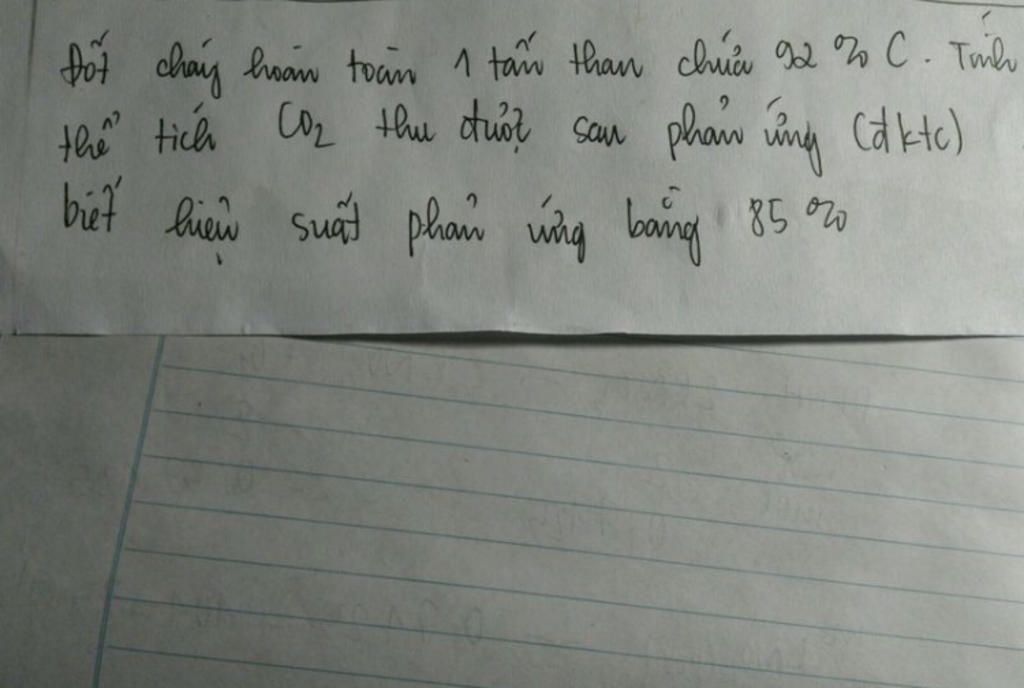 Đốt cháy hoàn toàn 1 tấn than chứa 92% C. Tính
thể tích CO2 thu được sau phản ứng (đktc)
biết hiệu suất phản ứng bằng 85%